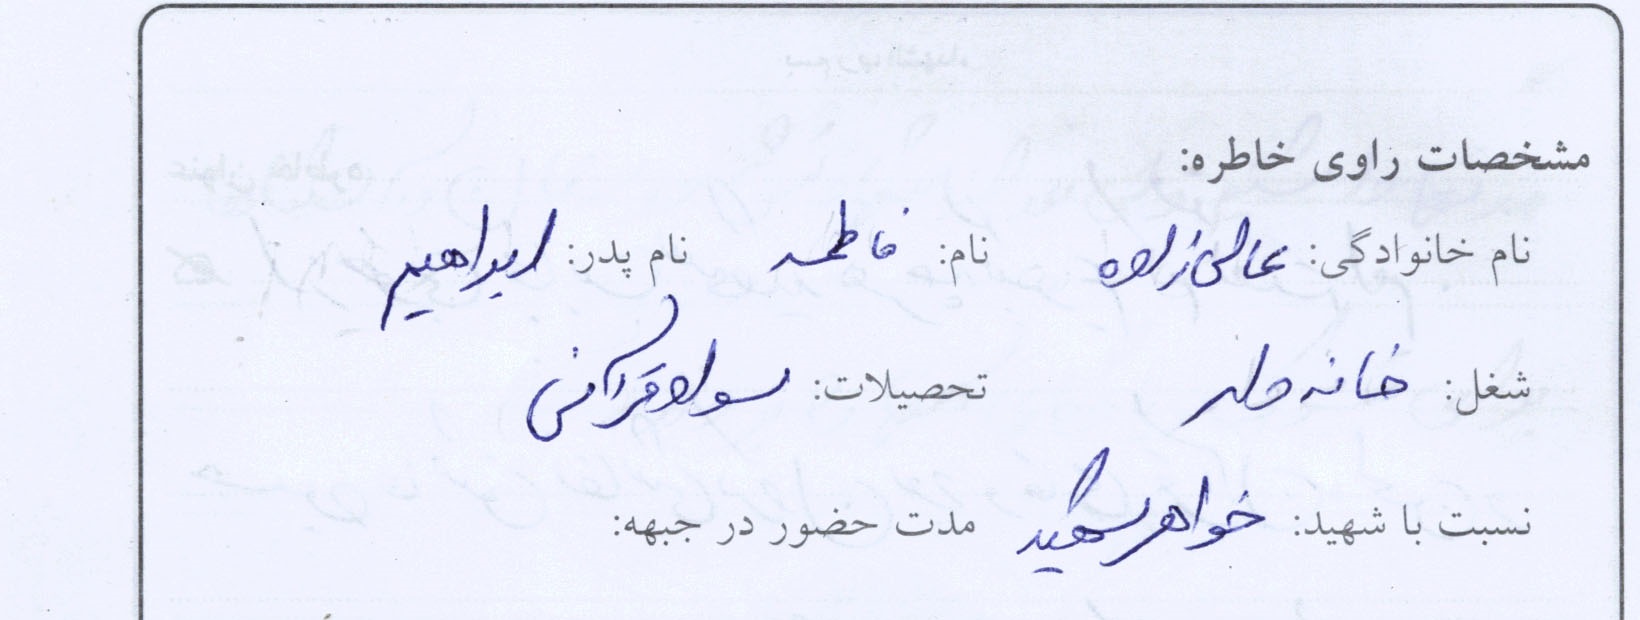 مشخصات راوی خاطره:
نام خانوادگی: عالی‌زاده نام: فاطمه نام پدر: ابراهیم
شغل: خانه دار تحصیلات: سواد قرآنی
نسبت با شهید: خواهر شهید مدت حضور در جبهه: